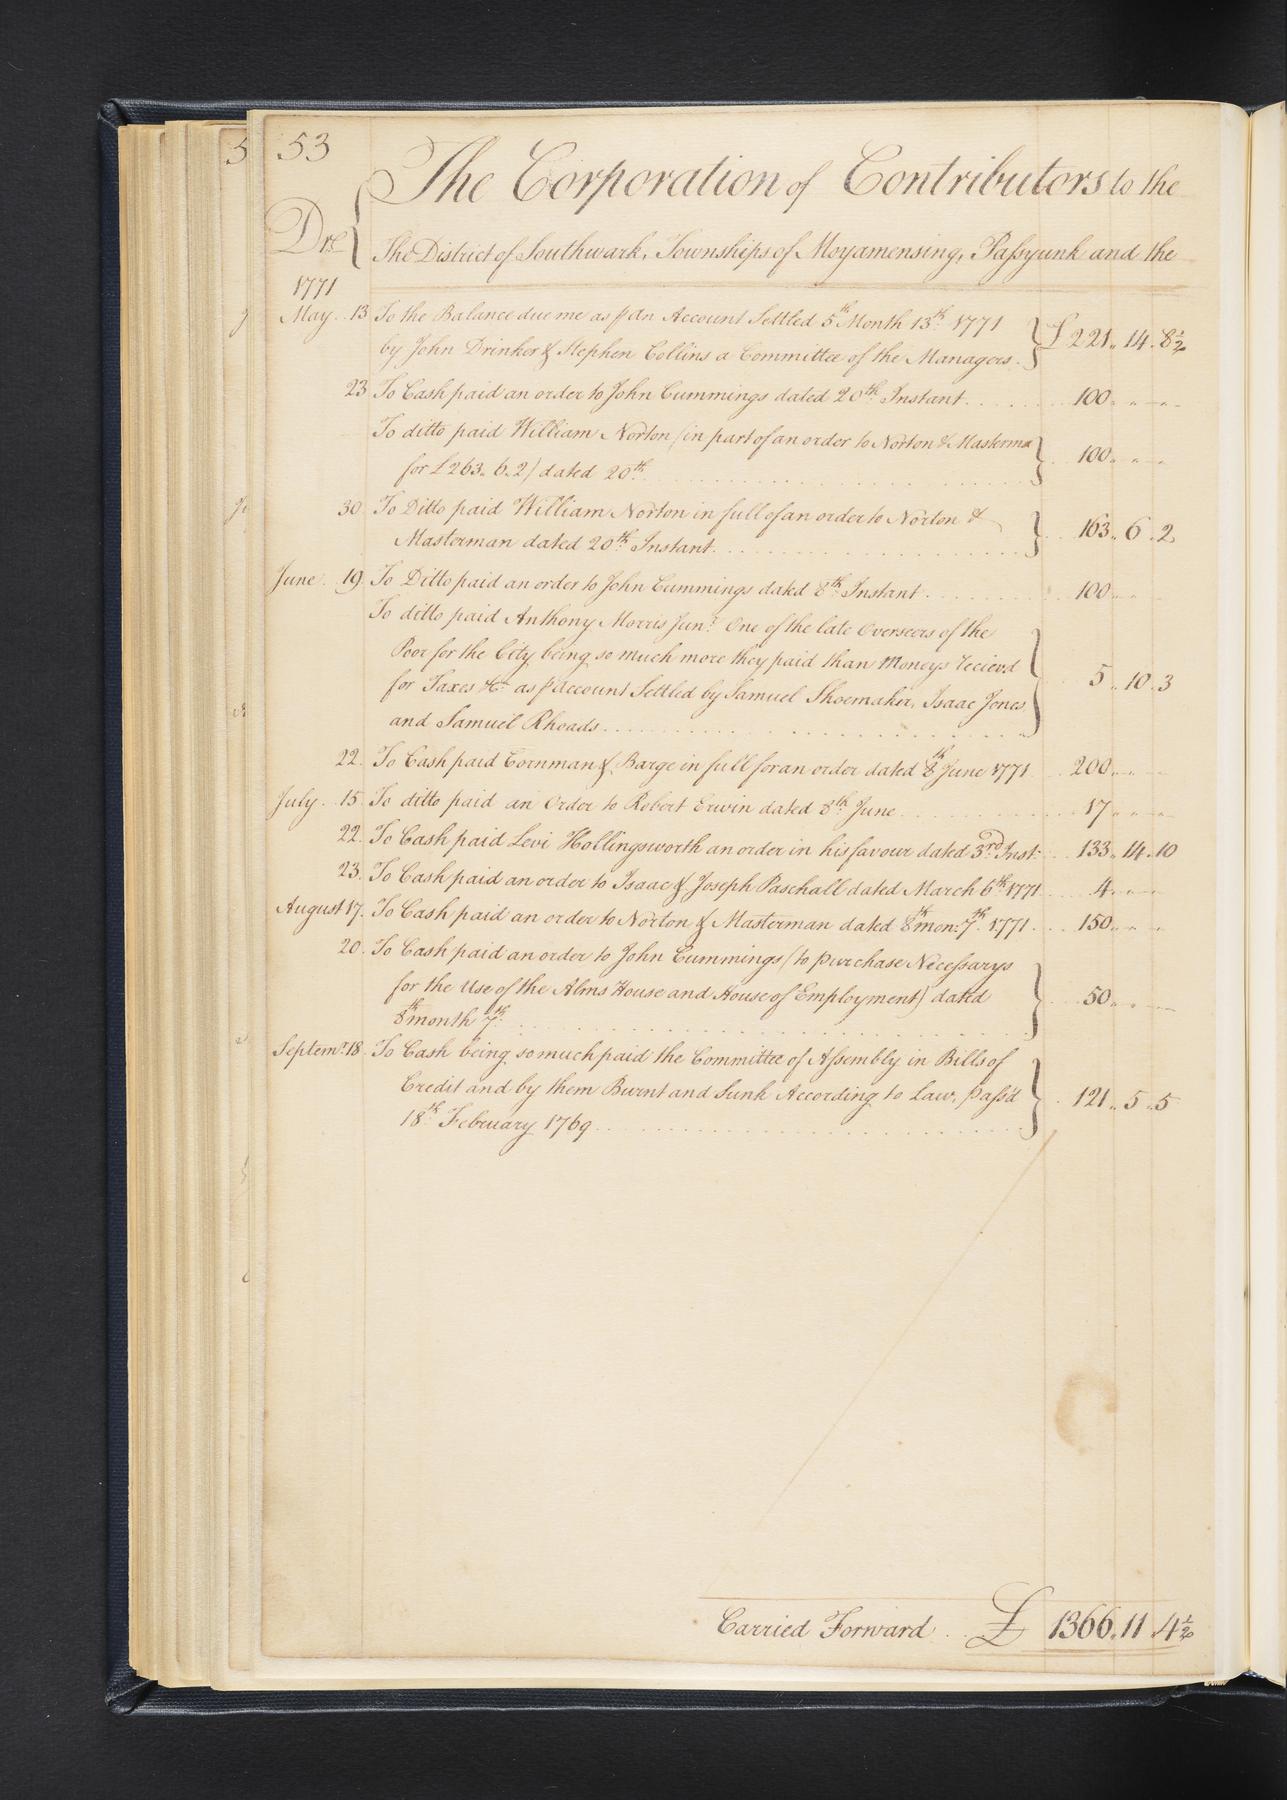 53
The Corporation of Contributors to the
Drs
The District of Southwark, Townships of Moyamensing, Passyunk and the
1771
May 13 To the Balance due me as p an Account Settled 5th Month 13th 1771
by John Drinker & Stephen Collins a Committee of the Managers. £ 221 .. 14 . 8½
23 To Cash paid an order to John Cummings dated 20th Instant 100 .. " — "
To ditto paid William Norton (in part of an order to Norton & Masterman
for £263. 6. 2) dated 20th 100 .. " — "
30 To Ditto paid William Norton in full of an order to Norton &
Masterman dated 20th Instant 163 .. 6 . 2
June 19 To Ditto paid an order to John Cummings dated 8th Instant 100 .. — "
To ditto paid Anthony Morris Junr. One of the late Overseers of the
Poor for the City being so much more they paid than Moneys recievd
for Taxes &c as p Account Settled by Samuel Shoemaker, Isaac Jones
and Samuel Rhoads 5 .. 10 . 3
22. To Cash paid Cornman & Barge in full for an order dated 8th June 1771 200 .. " — "
July 15 To ditto paid an Order to Robert Erwin dated 8th June 17 .. " — "
22. To Cash paid Levi Hollingsworth an order in his favour dated 3rd Inst: 133 .. 14 . 10
23. To Cash paid an order to Isaac & Joseph Paschall dated March 6th 1771 4 .. " — "
August 17. To Cash paid an order to Norton & Masterman dated 8th mon: 7th 1771 150 .. " — "
20. To Cash paid an order to John Cummings (to purchase Necessarys
for the Use of the Alms House and House of Employment) dated
8th month 7th 50 .. " — "
Septemr. 18. To Cash being so much paid the Committee of Assembly in Bills of
Credit and by them Burnt and Sunk According to Law, pass'd
18th February 1769 121 .. 5 . 5
Carried Forward £ 1366 .. 11 . 4½